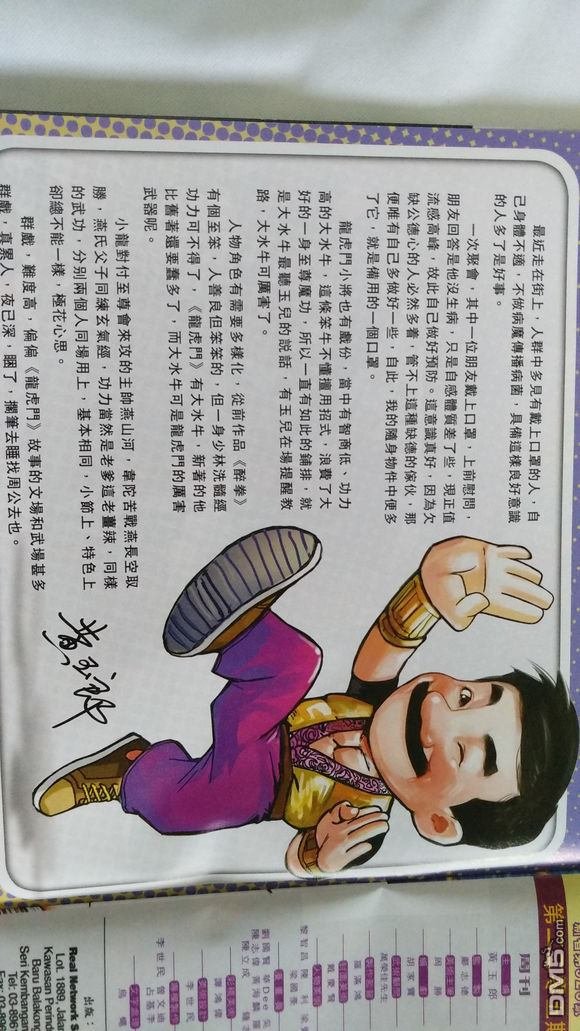 最近走在街上，人群中多見有戴上口罩的人，自
己身體不適，不做病魔傳播病菌，具備這樣良好意識
的人多了是好事。
一次聚會，其中一位朋友戴上口罩，上前慰問，
朋友回答是他沒生病，只是自感體質差了些，現正值
流感高峰，故此自己做好預防。這意識真好，因為欠
缺公德心的人必然多着，管不上這種缺德的傢伙，那
便唯有自己多做好一些，自此，我的隨身物件中便多
了它，就是備用的一個口罩。
龍虎門小將也有戲份，當中有智商低、功力
高的大水牛，這條笨牛不懂擅用招式，浪費了大
好的一身至尊魔功，所以一直有如此的鋪排，就
是大水牛最聽玉兒的說話，有玉兒在場提醒教
路，大水牛可厲害了。
人物角色有需要多樣化，從前作品《醉拳》
有個至笨，人善良但笨笨的，但一身少林洗髓經
功力可不得了，《龍虎門》有大水牛，新著的他
比舊著還要蠢多了，而大水牛可是龍虎門的厲害
武器呢。
小龍對付至尊會來攻的主帥燕山河，韋陀苦戰燕長空取
勝，燕氏父子同練玄氣經，功力當然是老爹這老薑辣，同樣
的武功，分別兩個人同場用上，基本相同，小節上、特色上
卻總不能一樣，極花心思。
群戲，難度高，偏偏《龍虎門》故事的文場和武場甚多
群戲，真累人，夜已深，睏了，擱筆去睡找周公去也。
黃玉郎
DMS.com
第一
周刊
黃玉郎
鄺志德
周勝
胡家寶
萬榮佳先生
羅滿鴻
戴慶聲
梁國豪
譚鴻偉
陳立成
李世民
烏梅
出版：
Real Network S
Lot. 1889, Jala
Kawasan Perind
Baru Balakong
Seri Kembangan
Tel: 03-896
Fax: 03-8